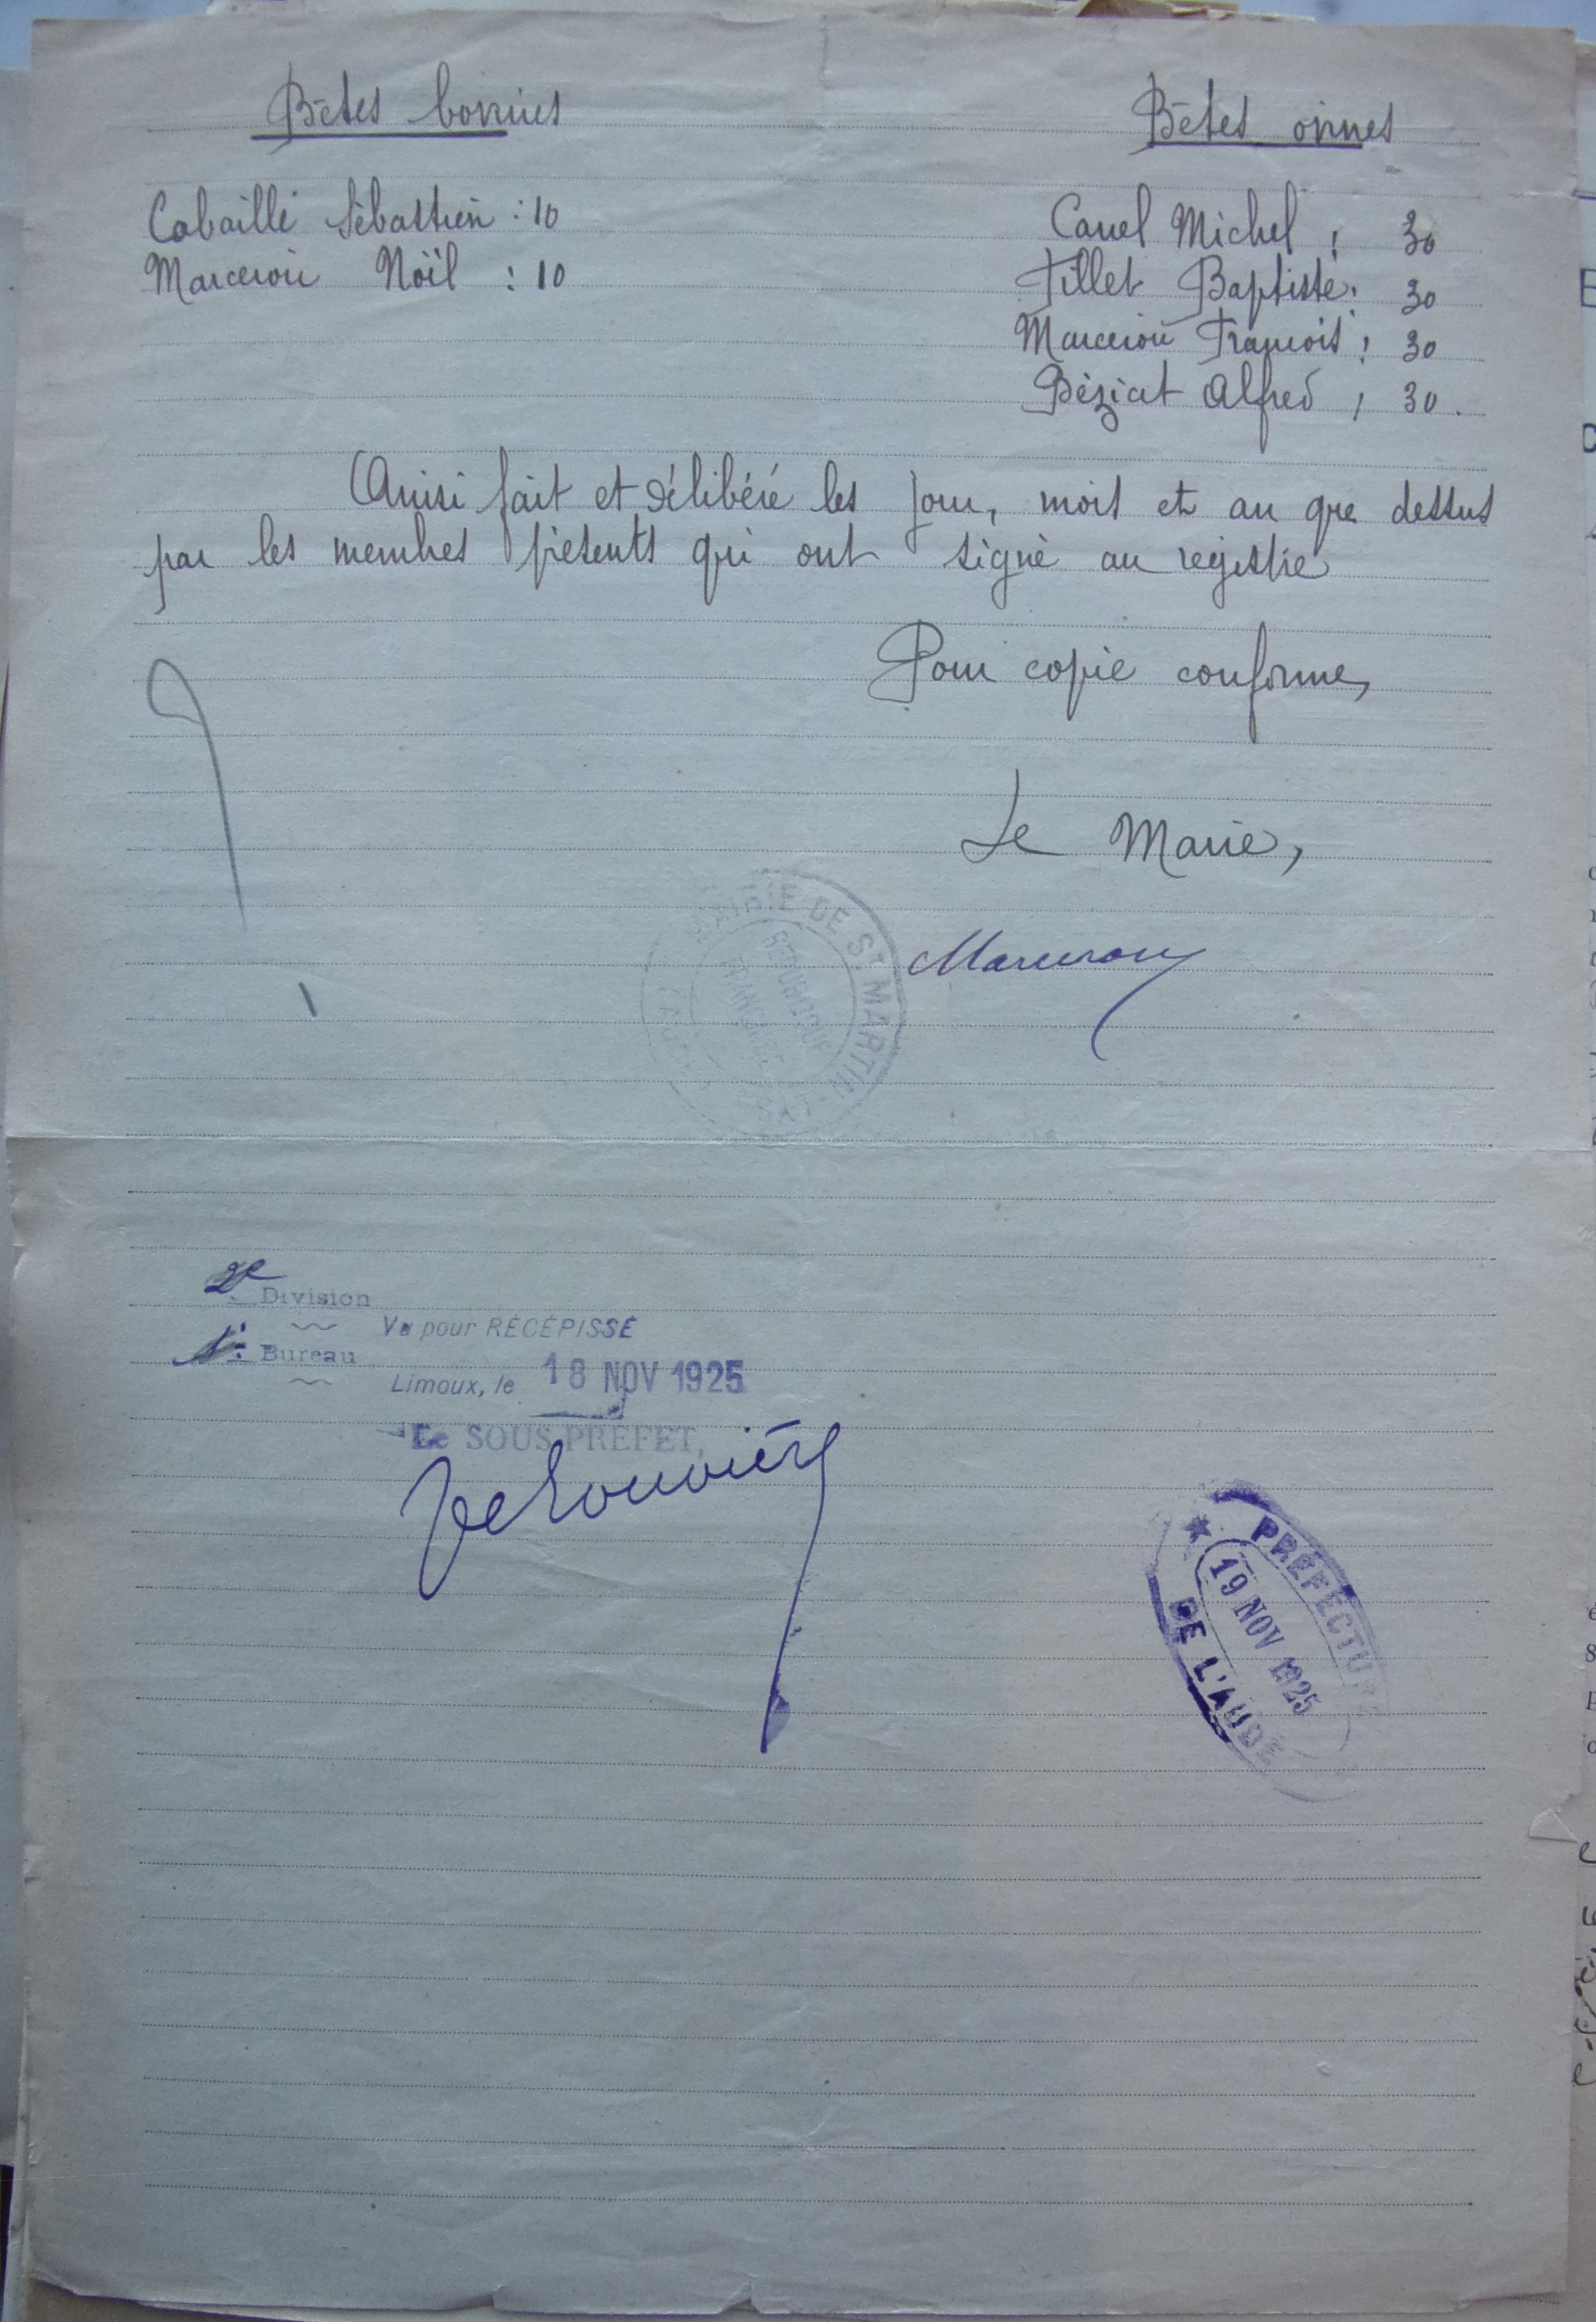 Bêtes bovines
Cabaillé Sébastien : 10
Marcerou Noël : 10
Bêtes ovines
Canel Michel : 30
Tillet Baptiste : 30
Marcerou François : 30
Béziat Alfred : 30.
Ainsi fait et délibéré les jour, mois et an que dessus
par les membres présents qui ont signé au registre
Pour copie conforme,
Le Maire,
Marcerou
MAIRIE DE ST MARTIN-LYS
REPUBLIQUE
FRANÇAISE
(AUDE)
2e Division
1er Bureau
Vu pour RÉCÉPISSÉ
Limoux, le 18 NOV 1925
Le SOUS-PRÉFET,
PRÉFECTURE
19 NOV 1925
DE L'AUDE